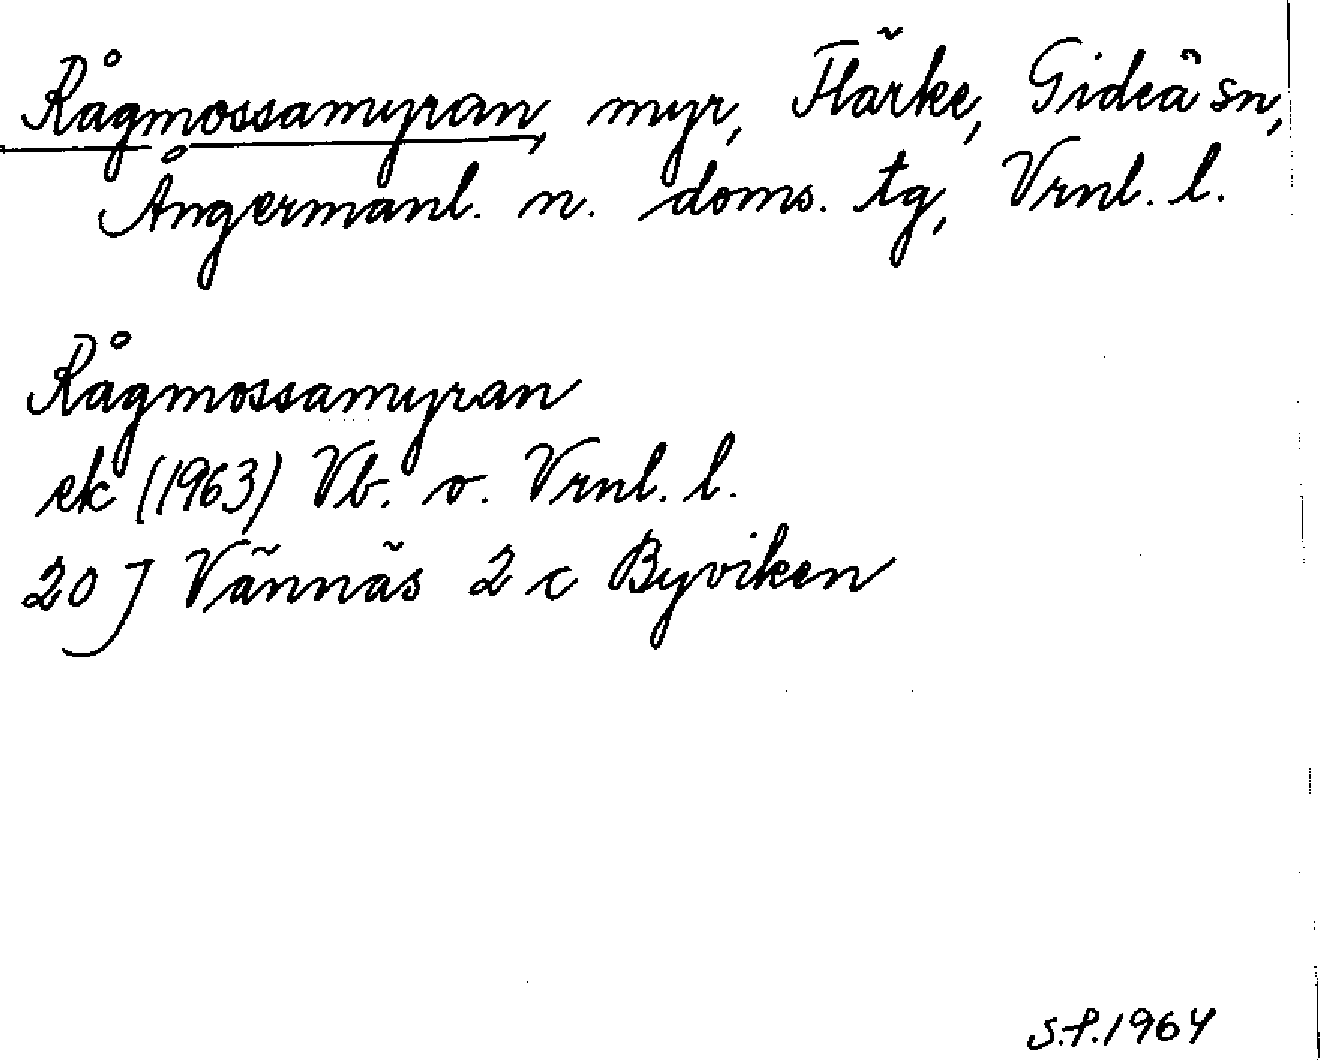 Rågmossamyran, myr, Flärke, Gideå sn,
Ångermanl. n. doms. tg, Vrnl. l.
Rågmossamyran
ek (1963) Vb. o. Vrnl. l.
20 J Vännäs 2 c Byviken
S.f. 1964